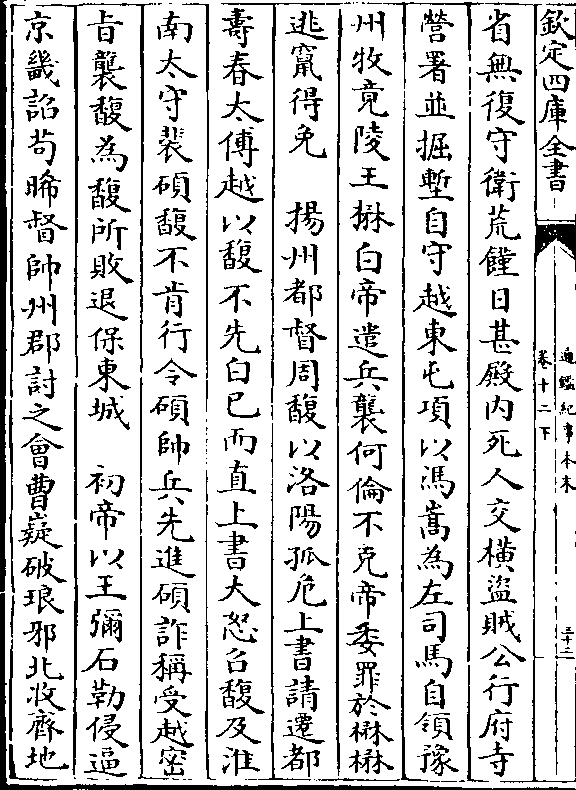 欽定四庫全書
通鑑紀事本末
卷十二下
三十二
省無復守衛荒饉日甚殿内死人交横盜賊公行府寺
營署並掘塹自守越東屯項以馮嵩為左司馬自領豫
州牧竟陵王楙白帝遣兵襲何倫不克帝委罪於楙楙
逃竄得免　揚州都督周馥以洛陽孤危上書請遷都
壽春太傅越以馥不先白已而直上書大怒召馥及淮
南太守裴碩馥不肯行令碩帥兵先進碩詐稱受越密
㫖襲馥為馥所敗退保東城　初帝以王彌石勒侵逼
京畿詔苟晞督帥州郡討之會曹嶷破琅邪北收齊地